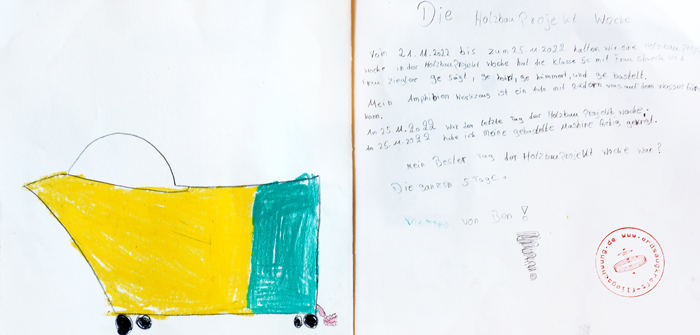 Die Holzbau Projekt Woche
Vom 21.11.2022 bis zum 25.11.2022 hatten wir eine Holzbau Proj
woche in der Holzbau Projekt Woche hat die Klasse 5c mit Frau und
Frau Ziegler ge sägt, ge bohrt, ge hämmert, und ge bastelt.
Mein Amphibien Fahrzeug ist ein Auto mit Rädern was auf dem Wasser fahren
kann.
Am 25.11.2022 war der letzte Tag der Holzbau Projekt Woche.
Am 25.11.2022 habe ich meine gebastelte Mashine fertig gekrigt.
mein Bester Tag der Holzbau Projekt Woche war?
Die ganzen 5 Tage.
von Ben!